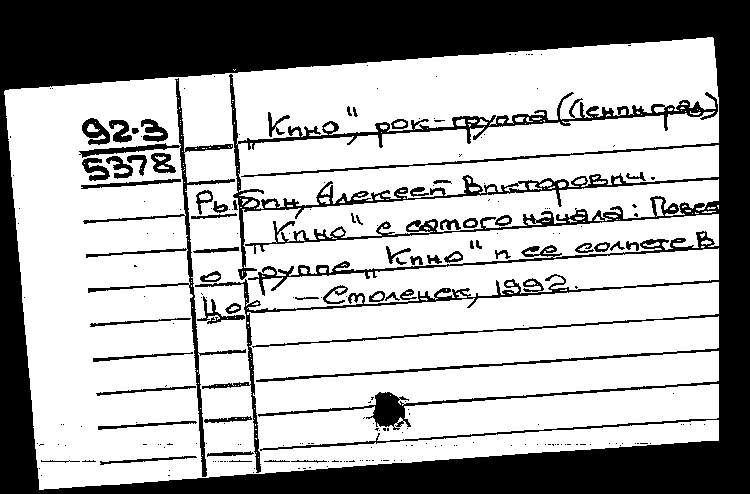 92-3
5378
„Кино“, рок-группа (Ленинград)
Рыбин, Алексей Викторович.
„Кино“ с самого начала: Повес
о группе „Кино“ и ее солисте В
Цое. – Смоленск, 1992.